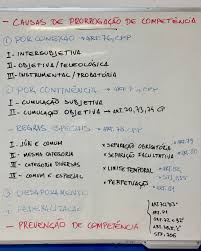 - CAUSAS DE PRORROGAÇÃO DE COMPETÊNCIA
① POR CONEXÃO → ART. 76, CPP
I - INTERSUBJETIVA
II - OBJETIVA / TELEOLÓGICA
III - INSTRUMENTAL / PROBATÓRIA
② POR CONTINÊNCIA → ART. 77, CPP
I - CUMULAÇÃO SUBJETIVA
II - CUMULAÇÃO OBJETIVA → ART. 70, 73, 74 CP
- REGRAS ESPECIAIS → ART. 78, CPP
I - JÚRI E COMUM
II - MESMA CATEGORIA
III - CATEGORIA DIVERSAS
IV - COMUM E ESPECIAL
• SEPARAÇÃO OBRIGATÓRIA → ART. 79
• SEPARAÇÃO FACULTATIVA → ART. 80
• LIMITE TEMPORAL → ART. 82
• PERPETUAÇÃO → ART. 81
③ DESAFORAMENTO
- PREVENÇÃO DE COMPETÊNCIA
ART. 71